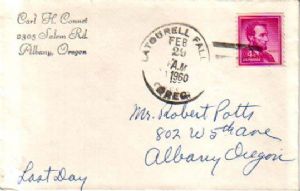 Carl H. Connet
2305 Salem Rd.
Albany, Oregon
LATOURELL FALL
FEB
29
A.M
1960
OREG.
4¢
Mr. Robert Potts
802 W 5th ave
Albany Oregon
Last Day